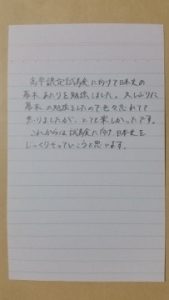 高卒認定試験に向けて日本史の
幕末あたりを勉強しました。久しぶりに
幕末の勉強をしたので色々忘れて
いましたが、とても楽しかったです。
これからは試験に向け日本史を
じっくりやっていこうと思います。